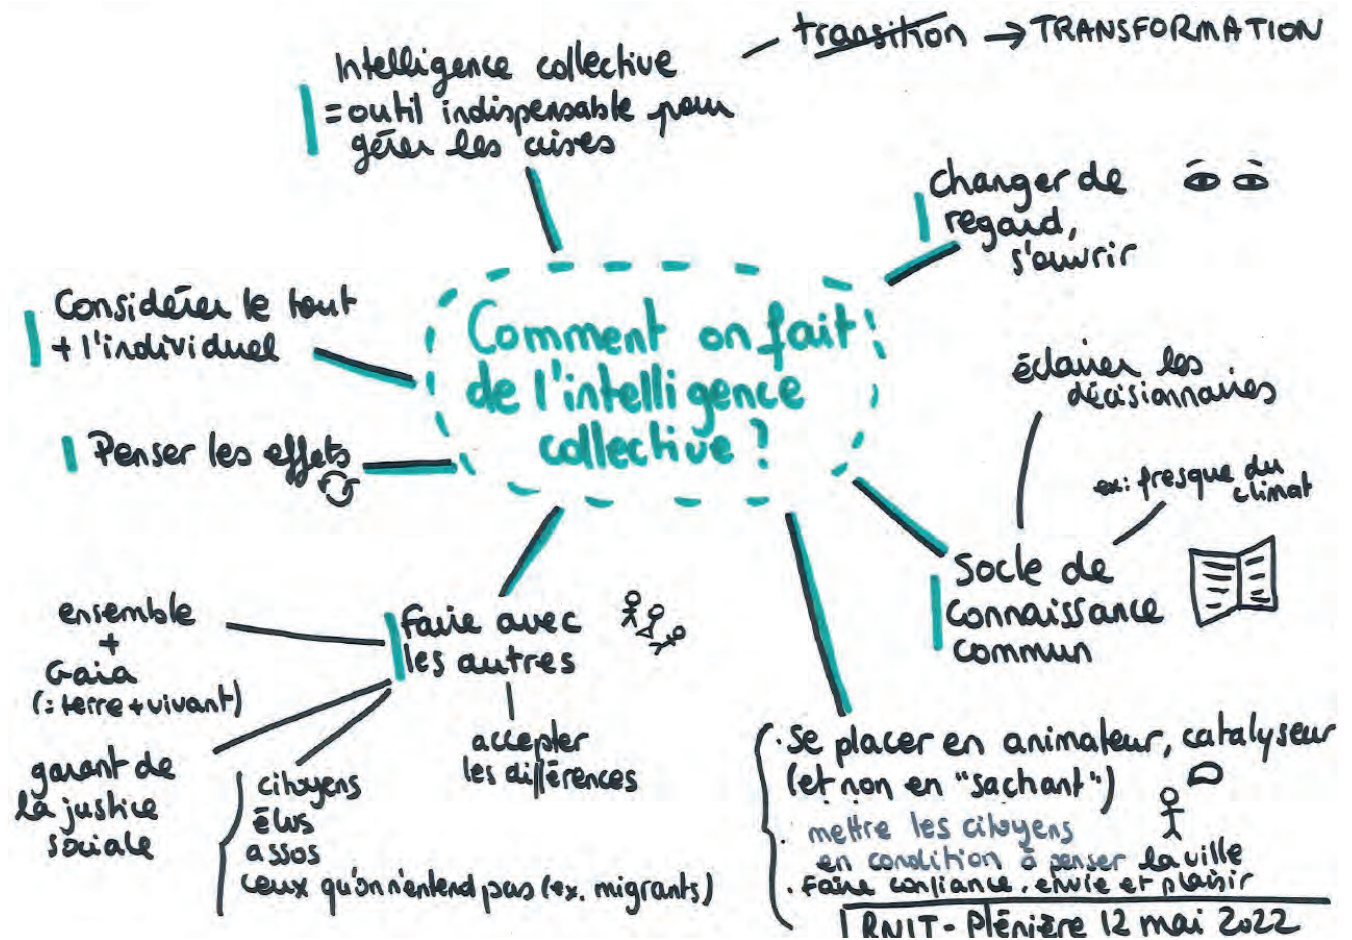 Intelligence collective
= outil indispensable pour
gérer les crises
transition → TRANSFORMATION
changer de
regard,
s'ouvrir
Considérer le tout
+ l'individuel
Comment on fait
de l'intelligence
collective ?
éclairer les
décisionnaires
ex: fresque du
climat
Penser les effets
Socle de
connaissance
commun
ensemble
+
Gaia
(= terre + vivant)
faire avec
les autres
accepter
les différences
garant de
la justice
sociale
citoyens
élus
assos
ceux qu'on n'entend pas (ex. migrants)
. Se placer en animateur, catalyseur
(et non en "sachant")
. mettre les citoyens
en condition à penser la ville
. Faire confiance, envie et plaisir
RNIT - Plénière 12 mai 2022